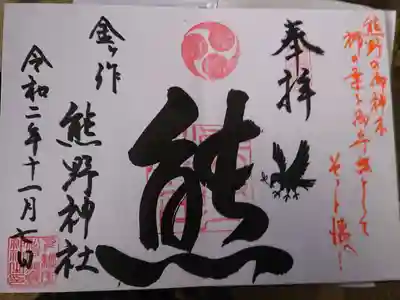 熊野の御神木
梛の葉を御守りとして
そっと懐へ!
奉拝
熊
金ヶ作
熊野神社
令和二年十一月七日